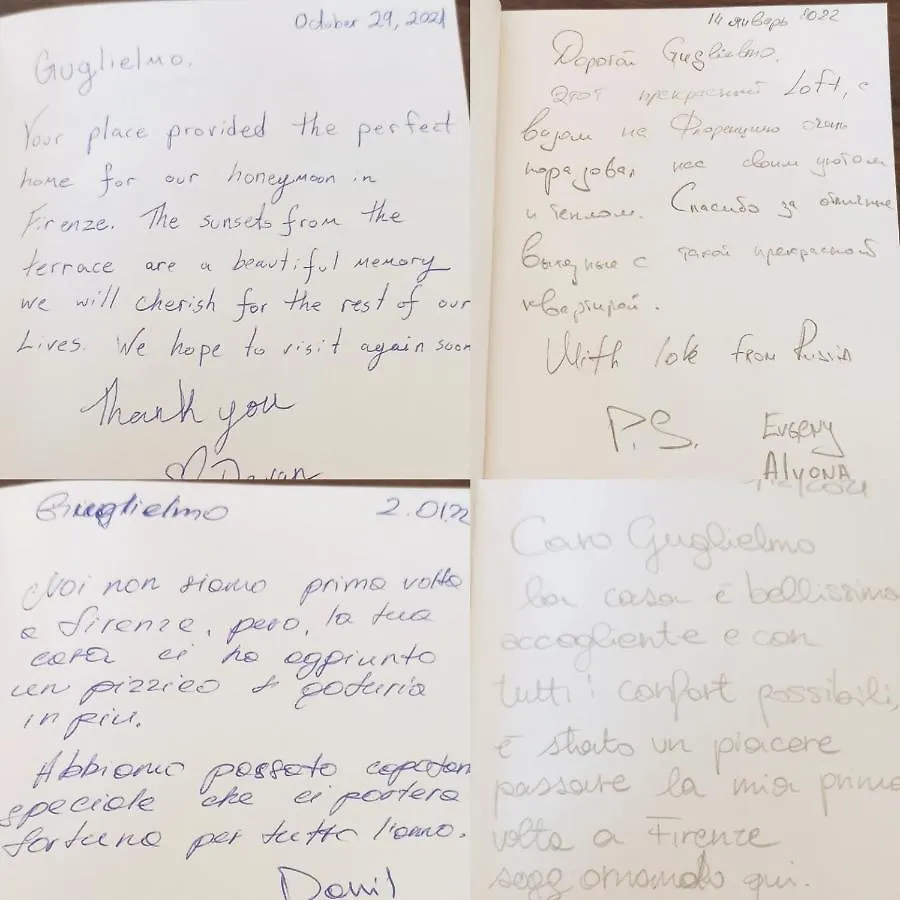 October 29, 2021
Guglielmo.
Your place provided the perfect
home for our honeymoon in
Firenze. The sunsets from the
terrace are a beautiful memory
we will cherish for the rest of our
Lives. We hope to visit again soon
Thank you
14 январь 2022
Дорогой Guglielmo.
Этот прекрасный Loft, с
видом на Флоренцию очень
порадовал нас своим уютом
и теплом. Спасибо за отличные
выходные с такой прекрасной
квартирой.
With love from Russia
P.S. Evgeny
Alyona
Guglielmo 2.01.22
Noi non siamo prima volta
a Firenze, però, la tua
casa ci ha aggiunto
un pizzico di goduria
in più.
Abbiamo passato capodan
speciale che ci porterà
fortuna per tutto l'anno.
Danil
/2021
Caro Guglielmo
la casa è bellissima
accogliente e con
tutti i confort possibili,
è stato un piacere
passare la mia prima
volta a Firenze
soggiornando qui.